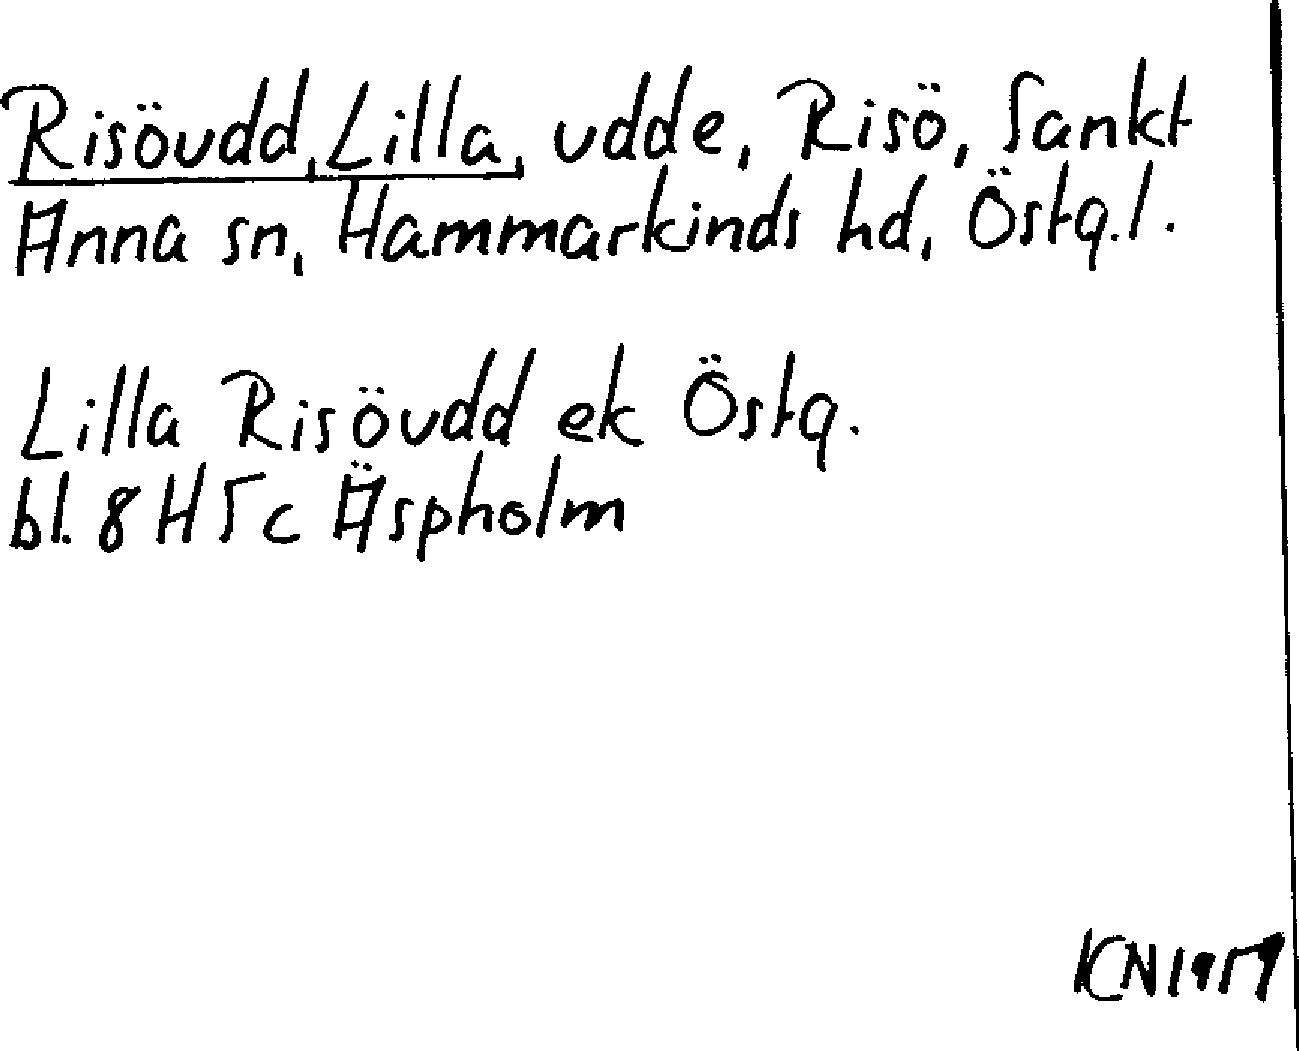 Risöudd, Lilla, udde, Risö, Sankt
Anna sn, Hammarkinds hd, Östg.l.
Lilla Risöudd ek Östg.
bl. 8 H 5 c Äspholm
KCN 1957